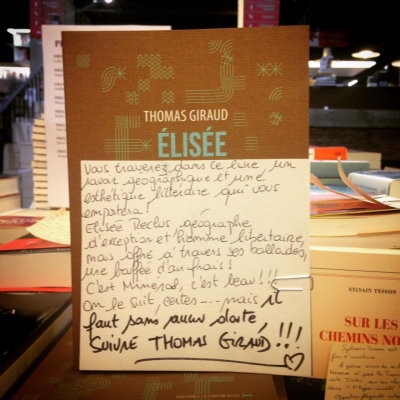 THOMAS GIRAUD
ÉLISÉE
Vous trouverez dans ce livre un
savoir géographique et une
esthétique littéraire qui vous
emportera!
Elisée Reclus géographe
d'exception et homme libertaire
nous offre à travers ses ballades,
une bouffée d'air frais!
C'est Minéral, c'est beau!!!
On le suit, certes --- mais il
faut sans aucun doute
SUIVRE THOMAS GIRAUD!!!
SYLVAIN TESSON
SUR LES
CHEMINS NO
Sylvain Tesson